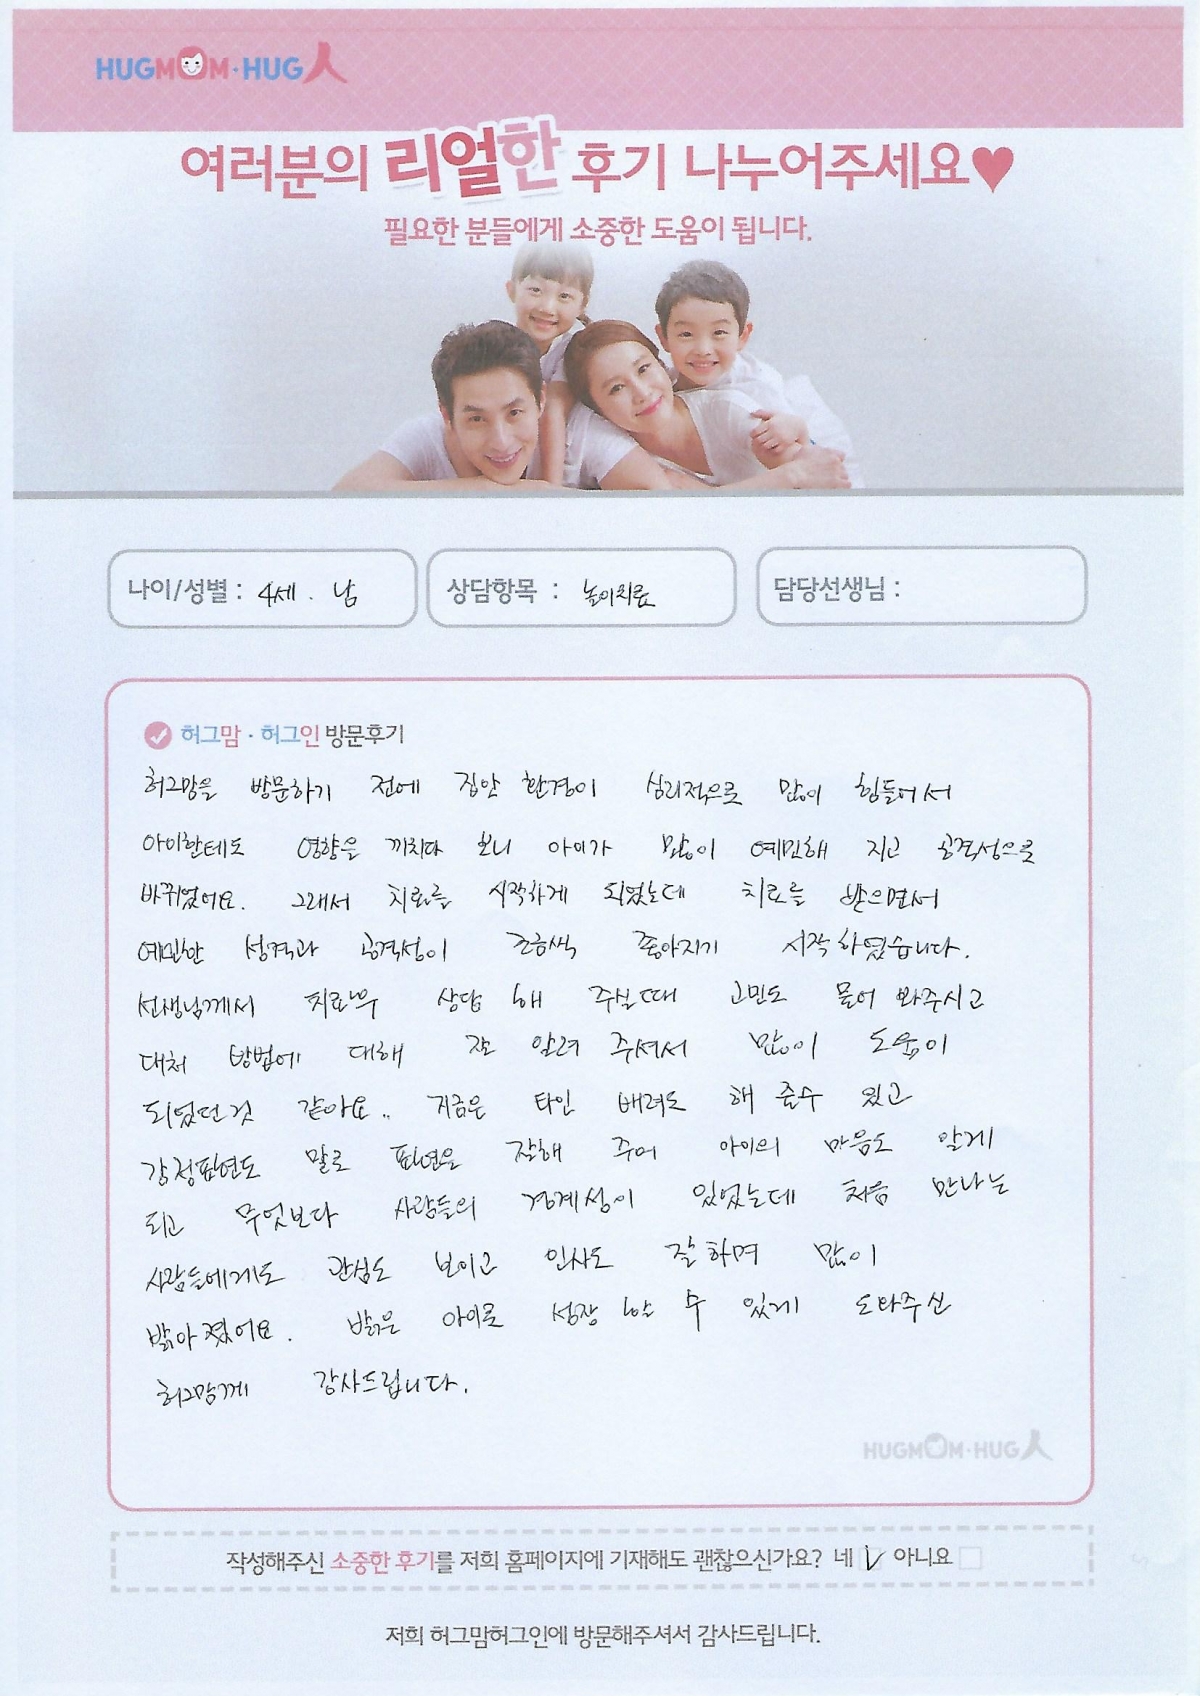 HUGMOM·HUG人
여러분의 리얼한 후기 나누어주세요♥
필요한 분들에게 소중한 도움이 됩니다.
나이/성별 : 4세 . 남 상담항목 : 놀이치료 담당선생님 :
허그맘 · 허그인 방문후기
허그맘을 방문하기 전에 집안 환경이 심리적으로 많이 힘들어서
아이한테도 영향을 끼치다 보니 아이가 많이 예민해 지고 공격성으로
바뀌었어요. 그래서 치료를 시작하게 되었는데 치료를 받으면서
예민한 성격과 공격성이 조금씩 좋아지기 시작하였습니다.
선생님께서 치료후 상담 해 주실때 고민도 물어 봐주시고
대처 방법에 대해 잘 알려 주셔서 많이 도움이
되었던것 같아요.. 지금은 타인 배려도 해 줄수 있고
감정표현도 말로 표현을 잘해 주어 아이의 마음도 알게
되고 무엇보다 사람들의 경계심이 있었는데 처음 만나는
사람들에게도 관심도 보이고 인사도 잘하며 많이
밝아졌어요. 밝은 아이로 성장 할 수 있게 도와주신
허그맘께 감사드립니다.
HUGMOM·HUG人
작성해주신 소중한 후기를 저희 홈페이지에 기재해도 괜찮으신가요? 네 ☑ 아니요 □
저희 허그맘허그인에 방문해주셔서 감사드립니다.